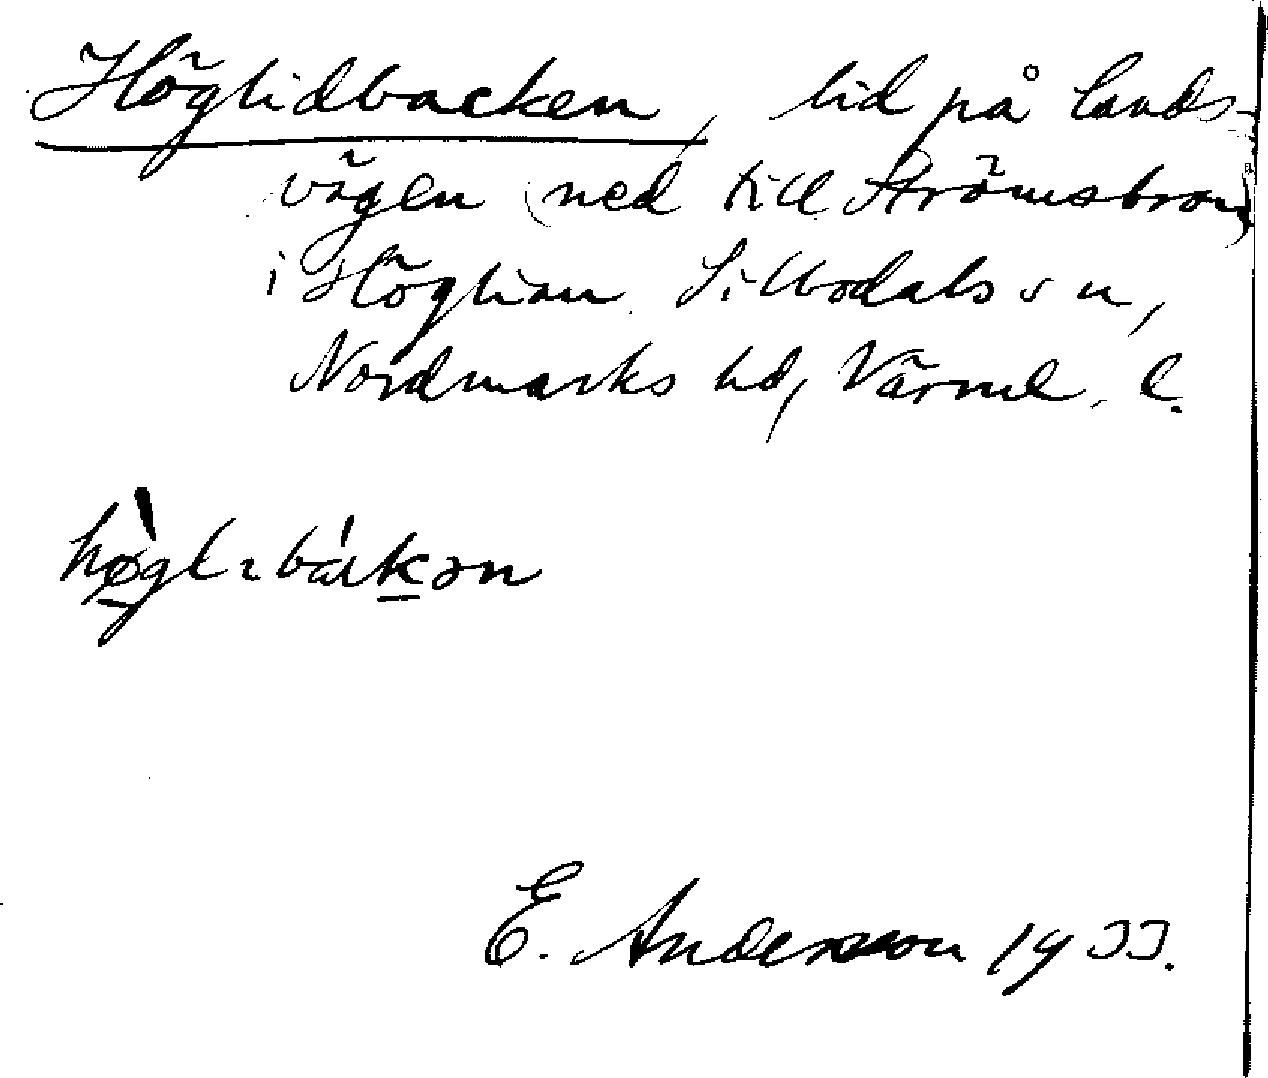 Höglidbacken, lid på lands-
vägen (ned till Strömsbron)
i Höglian Sillbodals sn,
Nordmarks hd, Värml. l.
E. Andersson 1933.